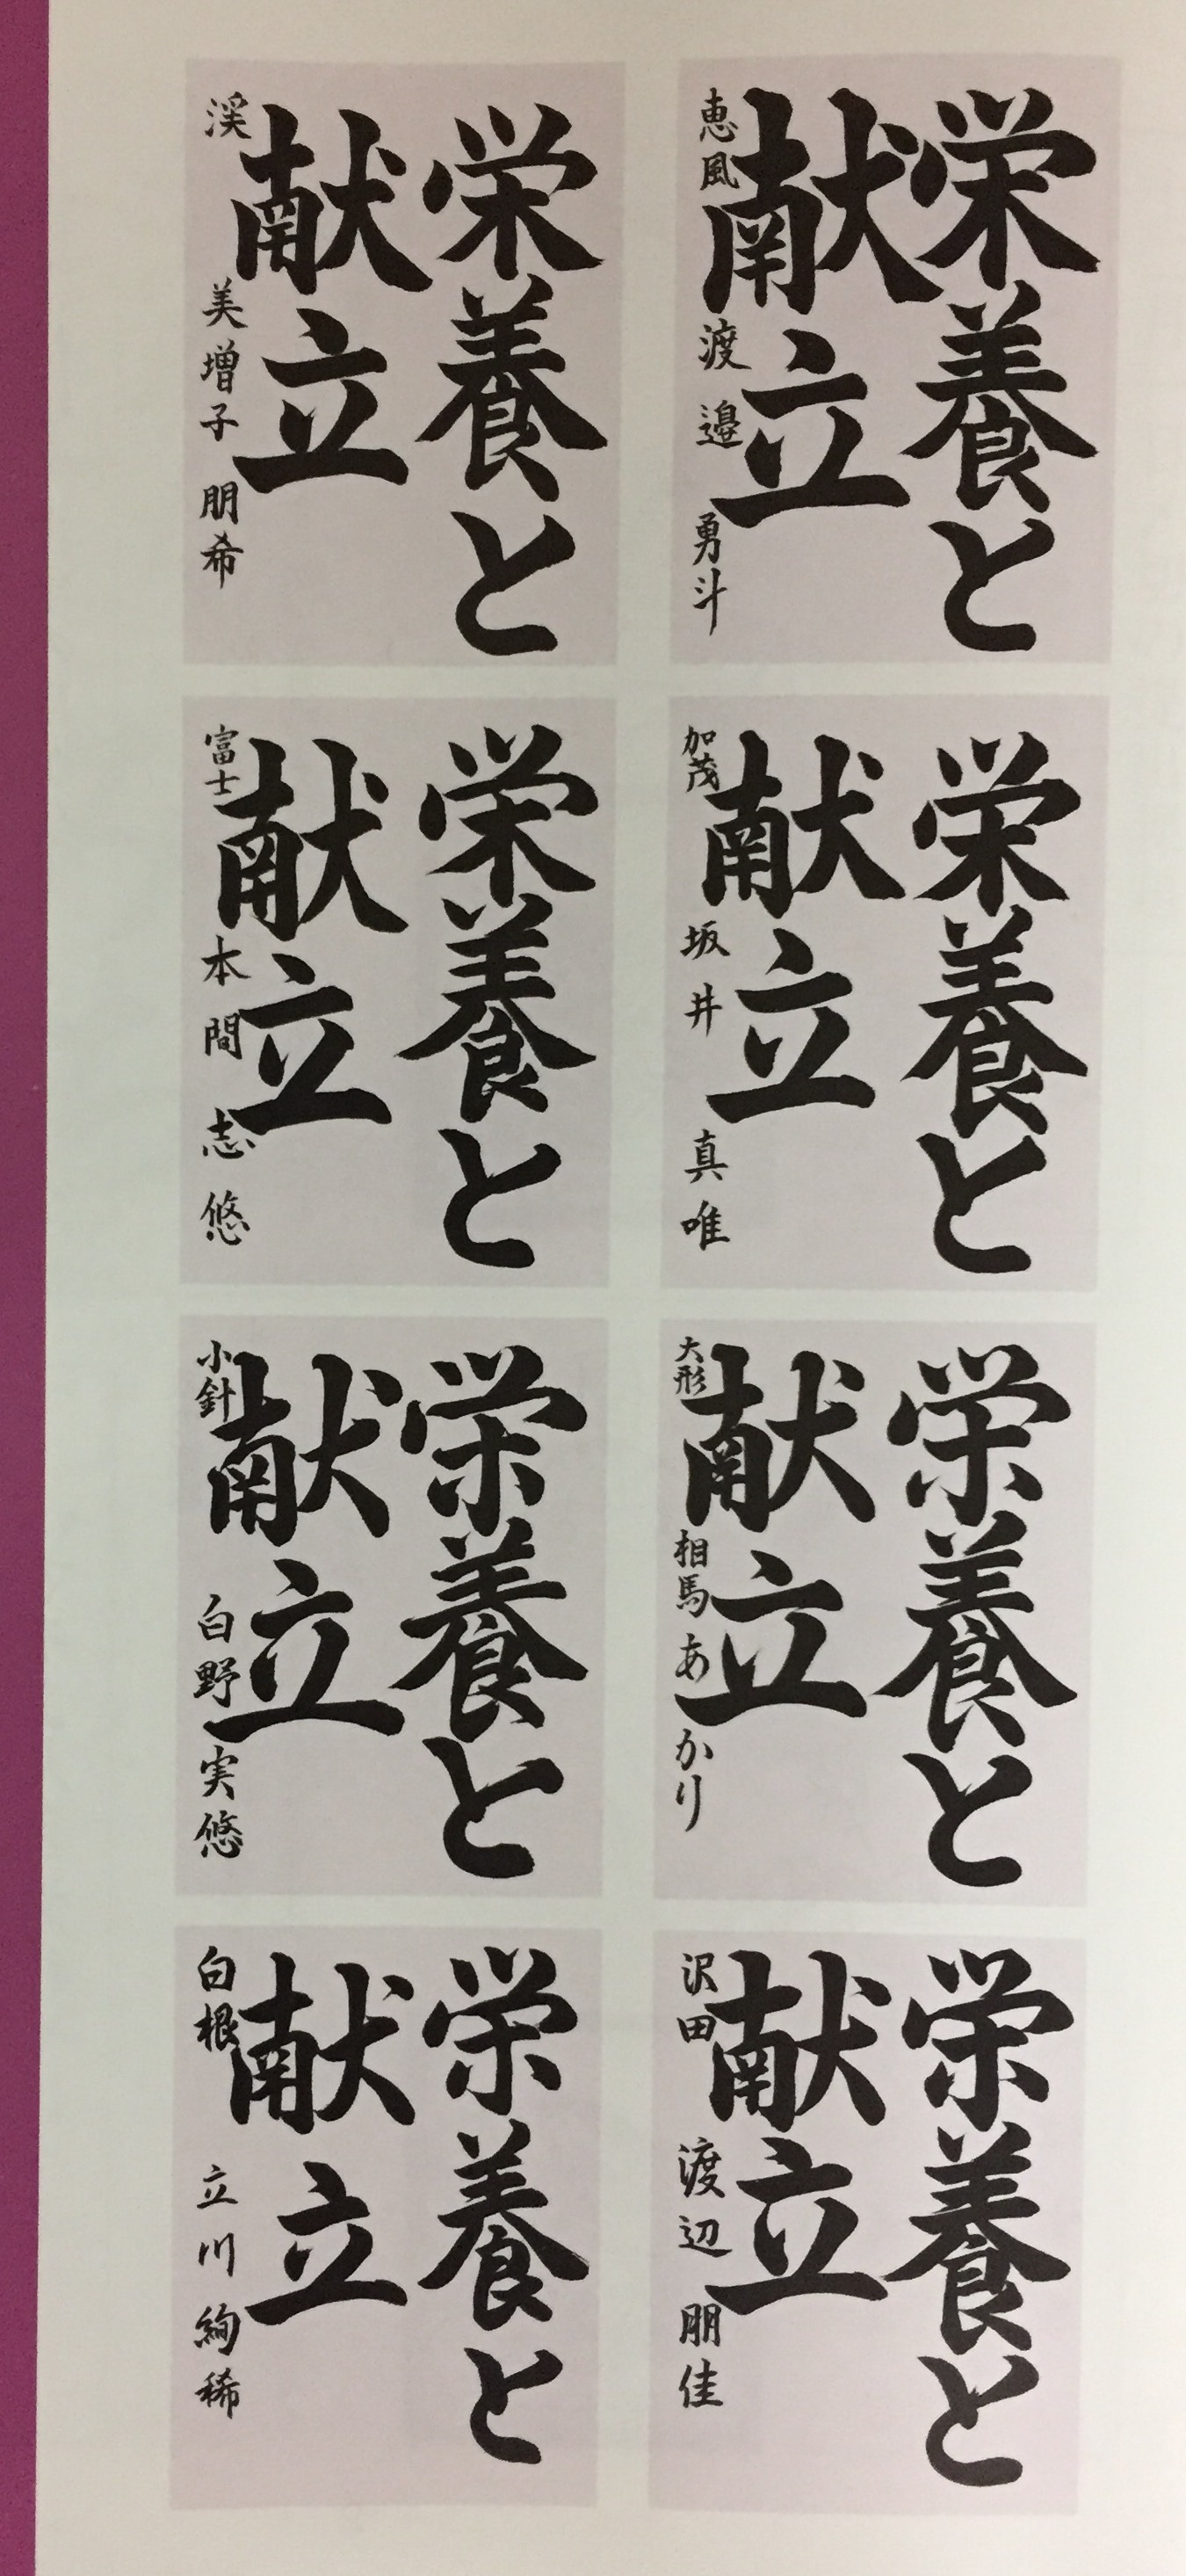 栄養と
献立
恵風 渡邉 勇斗
栄養と
献立
渓 美増子 朋希
栄養と
献立
加茂 坂井 真唯
栄養と
献立
富士 本間 志悠
栄養と
献立
大形 相馬 あかり
栄養と
献立
小針 白野 実悠
栄養と
献立
沢田 渡辺 朋佳
栄養と
献立
白根 立川 絢稀